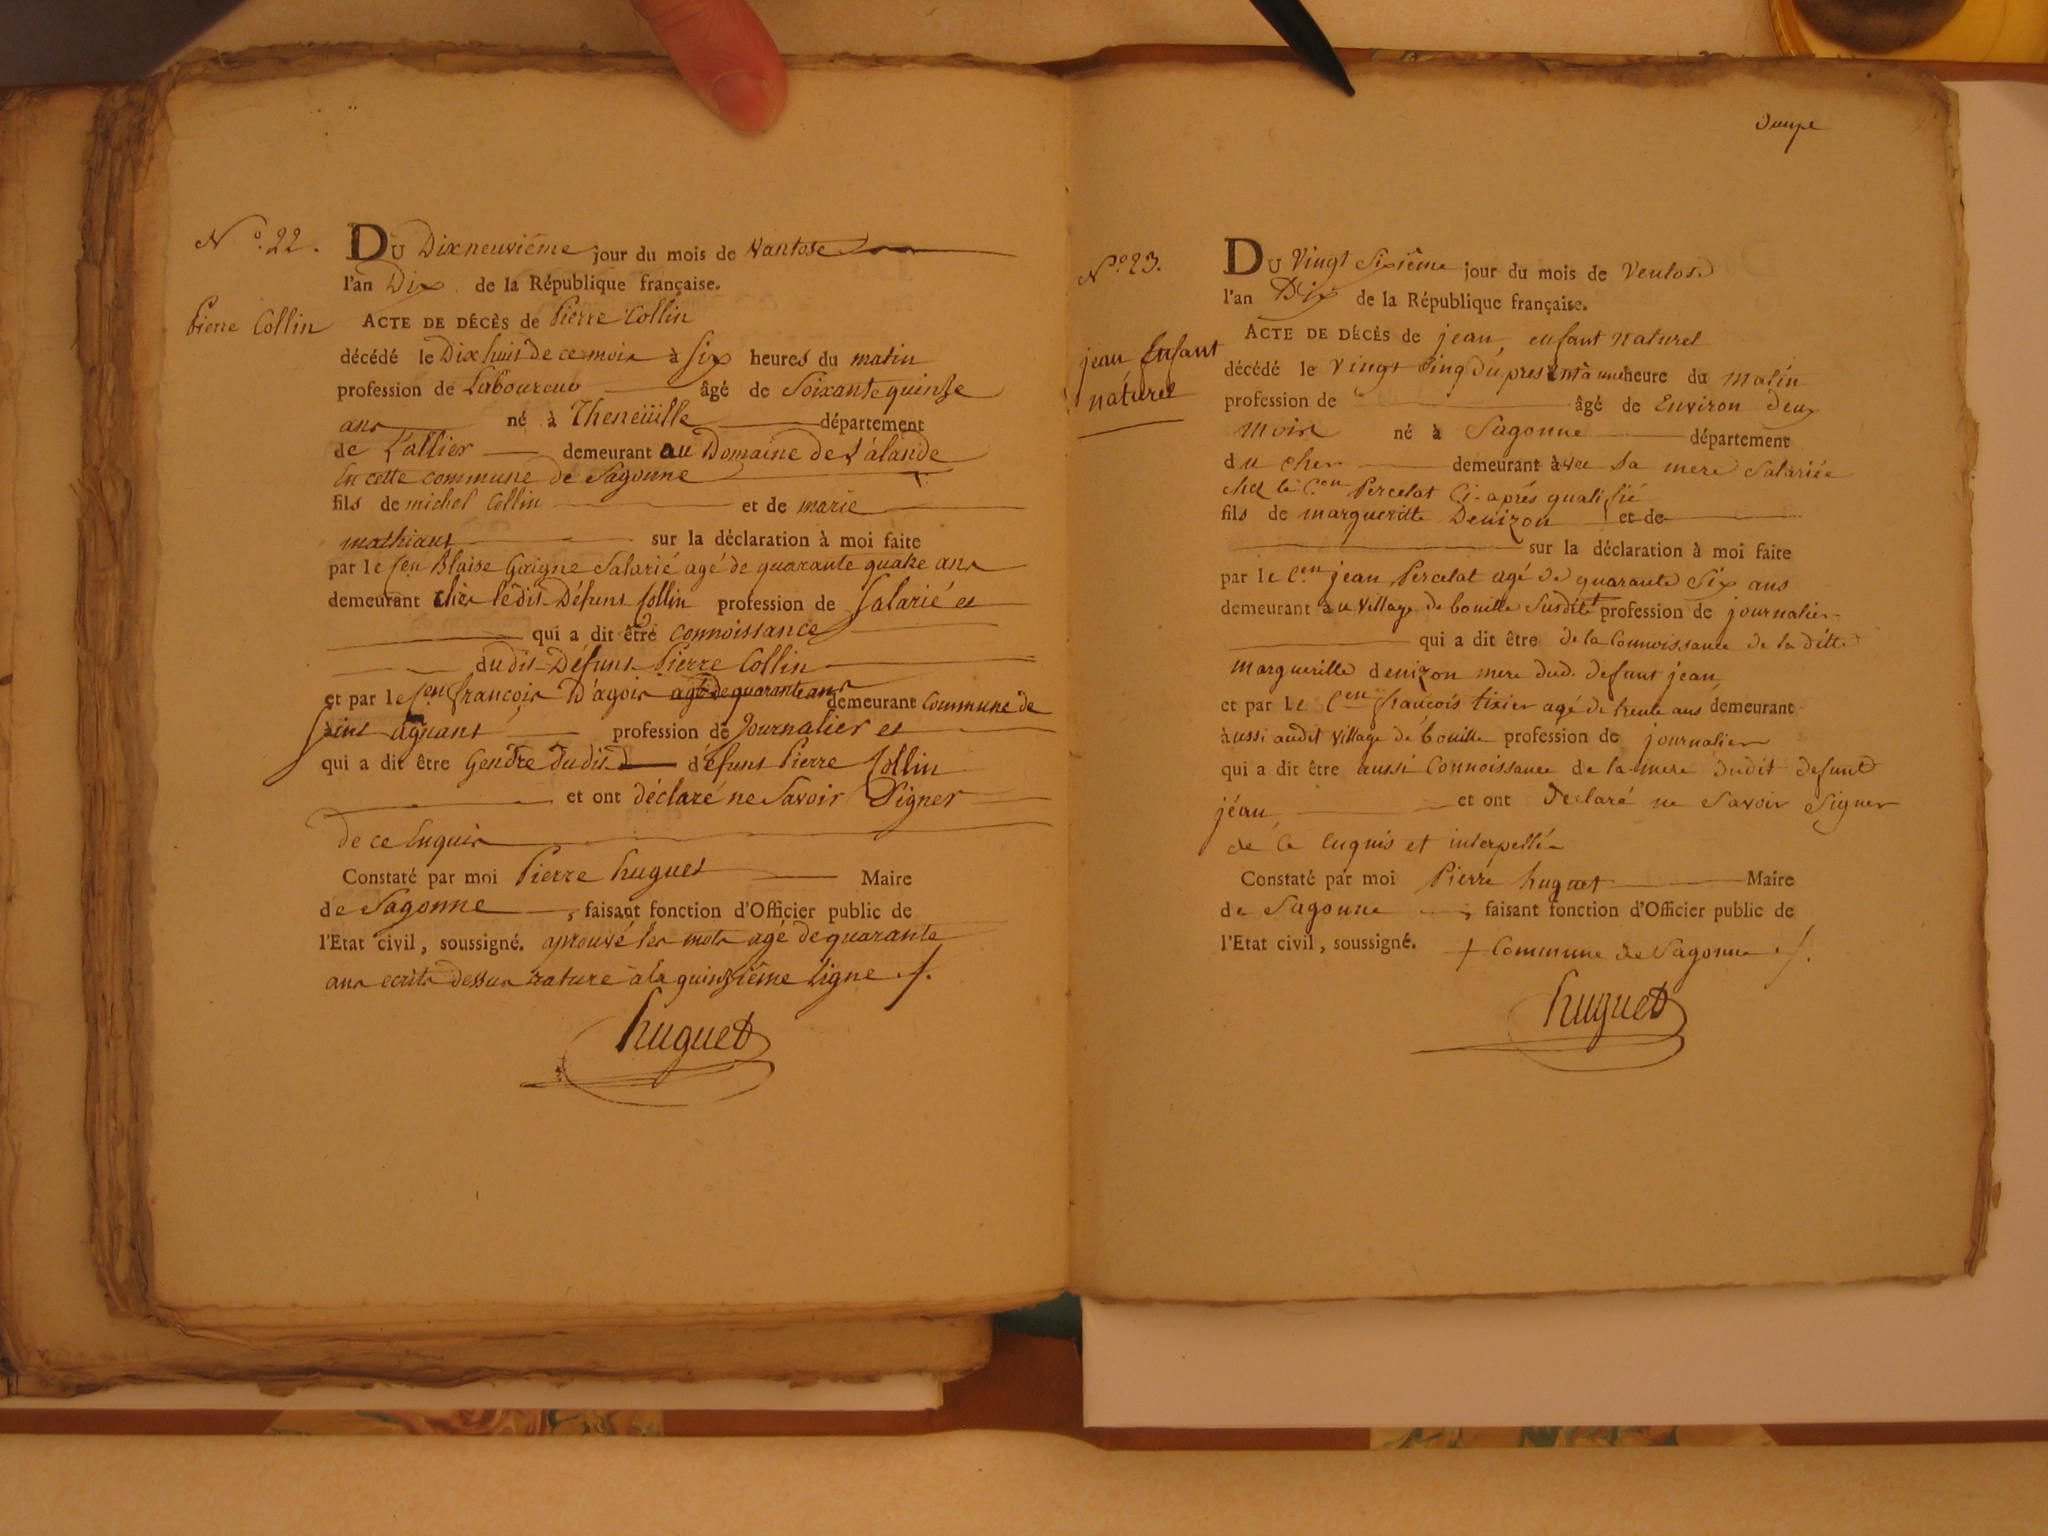 N.º 22.
Pierre Collin
DU Dixneuviéme jour du mois de Vantose
l'an Dix de la République française.
ACTE DE DÉCÈS de Pierre Collin
décédé le Dix huit de ce mois à Six heures du matin
profession de Laboureur âgé de Soixante quinze
ans né à Theneüille département
de L'allier demeurant au Domaine de Lálande
En cette commune de Sagonne
fils de michel Collin et de marie
mathiaus sur la déclaration à moi faite
par le Cen Blaise Gaigne Salarié agé de quarante quatre ans
demeurant chés lédit Défunt Collin profession de Salarié et
qui a dit être connoissance
dudit Défunt Pierre Collin
et par le Cen françois D'agois agé de quarante ans demeurant Commune de
Saint agnant profession de Journalier et
qui a dit être Gendre dudit défunt Pierre Collin
et ont déclaré ne Savoir Signer
de ce Enquis
Constaté par moi Pierre huguet Maire
de Sagonne, faisant fonction d'Officier public de
l'Etat civil, soussigné. aprouvé les mots agé de quarante
ans ecrits dessus rature à la quinziéme Ligne ./.
huguet
N.º 23.
jean Enfant
náturel
DU Vingt Sixiême jour du mois de Ventose
l'an Dix de la République française.
ACTE DE DÉCÈS de jean, enfant naturel
décédé le Vingt Cinq du présent à une heure du Matin
profession de âgé de Environ deux
Mois né à Sagonne département
du cher demeurant àvec Sa mere Salariée
chez le C.en Percelat Ci-aprés qualifié
fils de margueritte Denizon et de
sur la déclaration à moi faite
par le C.en jean Percelat agé de quarante Six ans
demeurant au village de bouille Susdite + profession de journalier
qui a dit être de la Connoissance de la ditte
Margueritte denizon mere dud. defunt jean
et par le C.en françois tixier agé de trente ans demeurant
àussi audit village de bouille profession de journalier
qui a dit être aussi Connoissance de la mere dudit defunt
jéan, et ont declaré ne Savoir Signer
de Ce Enquis et interpellés
Constaté par moi Pierre huguet Maire
de Sagonne, faisant fonction d'Officier public de
l'Etat civil, soussigné. + Commune de Sagonne ./.
huguet